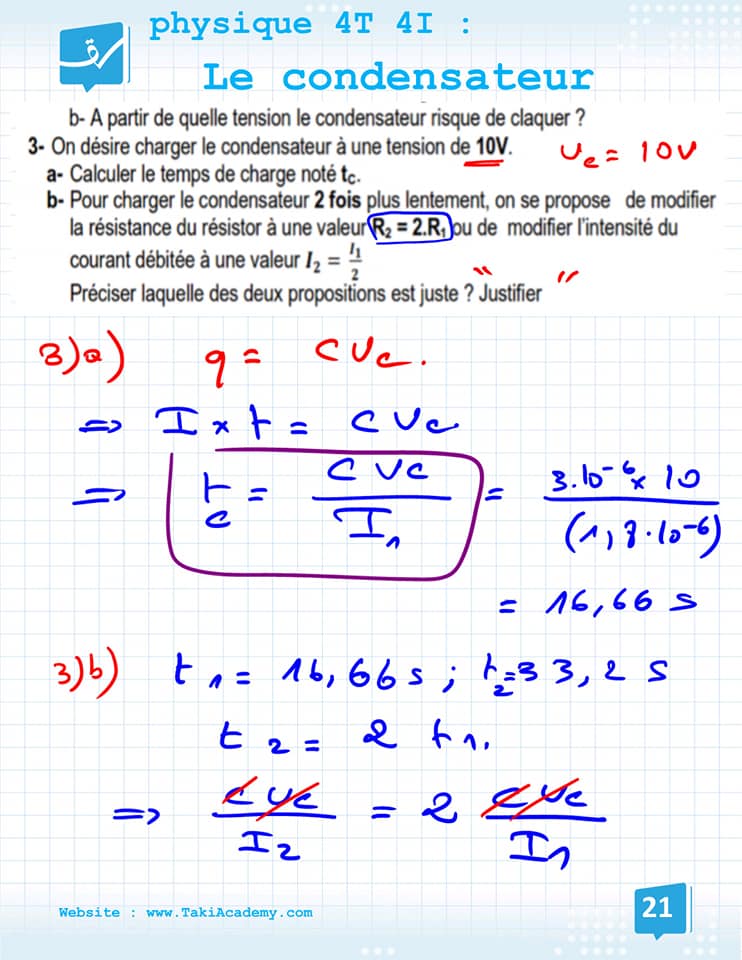 physique 4T 4I :
Le condensateur
b- A partir de quelle tension le condensateur risque de claquer ?
3- On désire charger le condensateur à une tension de 10V.
Uc = 10V
a- Calculer le temps de charge noté tc.
b- Pour charger le condensateur 2 fois plus lentement, on se propose de modifier
la résistance du résistor à une valeur R2 = 2.R1 ou de modifier l'intensité du
courant débitée à une valeur I2 = I1/2
Préciser laquelle des deux propositions est juste ? " Justifier "
3)a) q = CUc.
=> I x t = CUc
=> tc = CUc/I1 = 3.10-6 x 10/(1,8.10-6)
= 16,66 s
3)b) t1 = 16,66 s ; t2 = 33,2 s
t2 = 2 t1.
=> CUc/I2 = 2 CUc/I1
Website : www.TakiAcademy.com
21